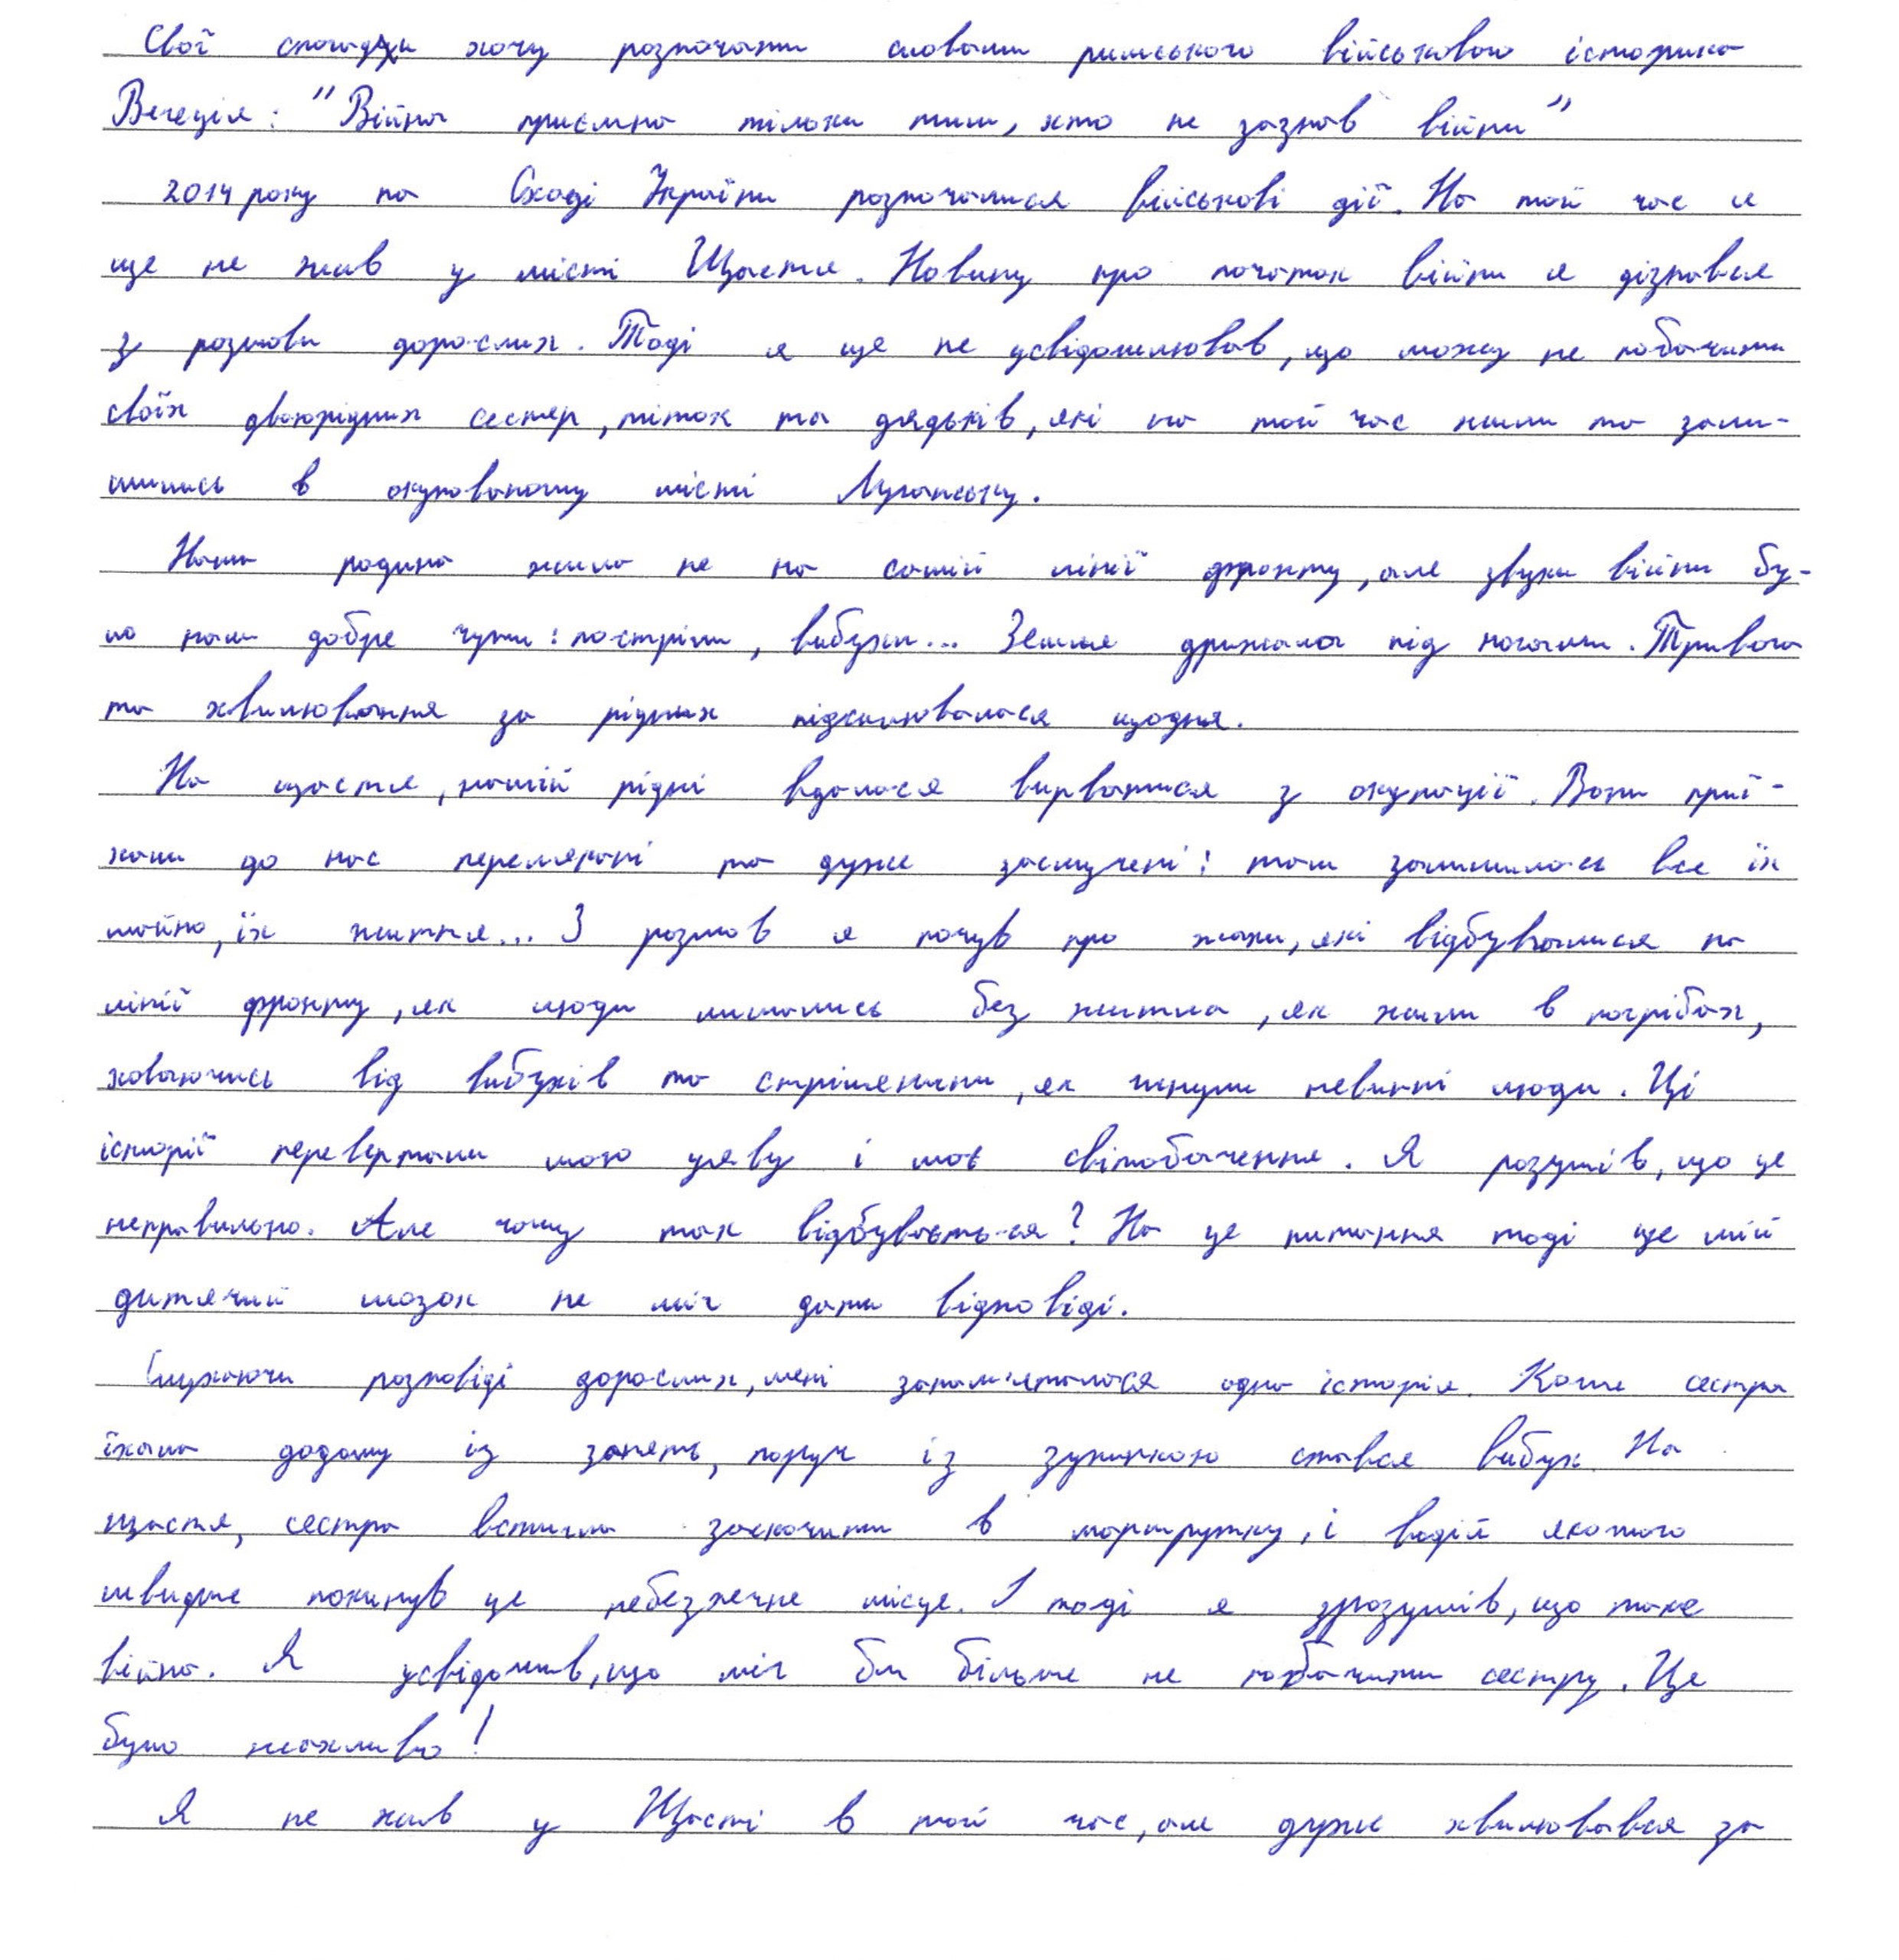 Свої спогади хочу розпочати словами римського військового історика
Вегеція: "Війна приємна тільки тим, хто не зазнав війни"
2014 року на Сході України розпочалися військові дії. На той час я
ще не жив у місті Щастя. Новину про початок війни я дізнався
з розмови дорослих. Тоді я ще не усвідомлював, що можу не побачити
своїх двоюрідних сестер, тіток та дядьків, які на той час жили та зали-
шились в окупованому місті Луганську.
Наша родина жила не на самій лінії фронту, але звуки війни бу-
ло нам добре чути: постріли, вибухи... Земля дрижала під ногами. Тривога
та хвилювання за рідних підсилювалася щодня.
На щастя, нашій рідні вдалося вирватися з окупації. Вони приї-
хали до нас перелякані та дуже засмучені: там залишилось все їх
майно, їх життя... З розмов я почув про жахи, які відбувалися на
лінії фронту, як люди лишались без житла, як жили в погрібах,
ховаючись від вибухів та стрілянини, як гинули невинні люди. Ці
історії перевертали мою уяву і моє світобачення. Я розумів, що це
неправильно. Але чому так відбувається? На це питання тоді ще мій
дитячий мозок не міг дати відповіді.
Слухаючи розповіді дорослих, мені запам'яталася одна історія. Коли сестра
їхала додому із занять, поруч із зупинкою стався вибух. На
щастя, сестра встигла заскочити в маршрутку, і водій якомога
швидше покинув це небезпечне місце. І тоді я зрозумів, що таке
війна. Я усвідомив, що міг би більше не побачити сестру. Це
було жахливо!
Я не жив у Щасті в той час, але дуже хвилювався за